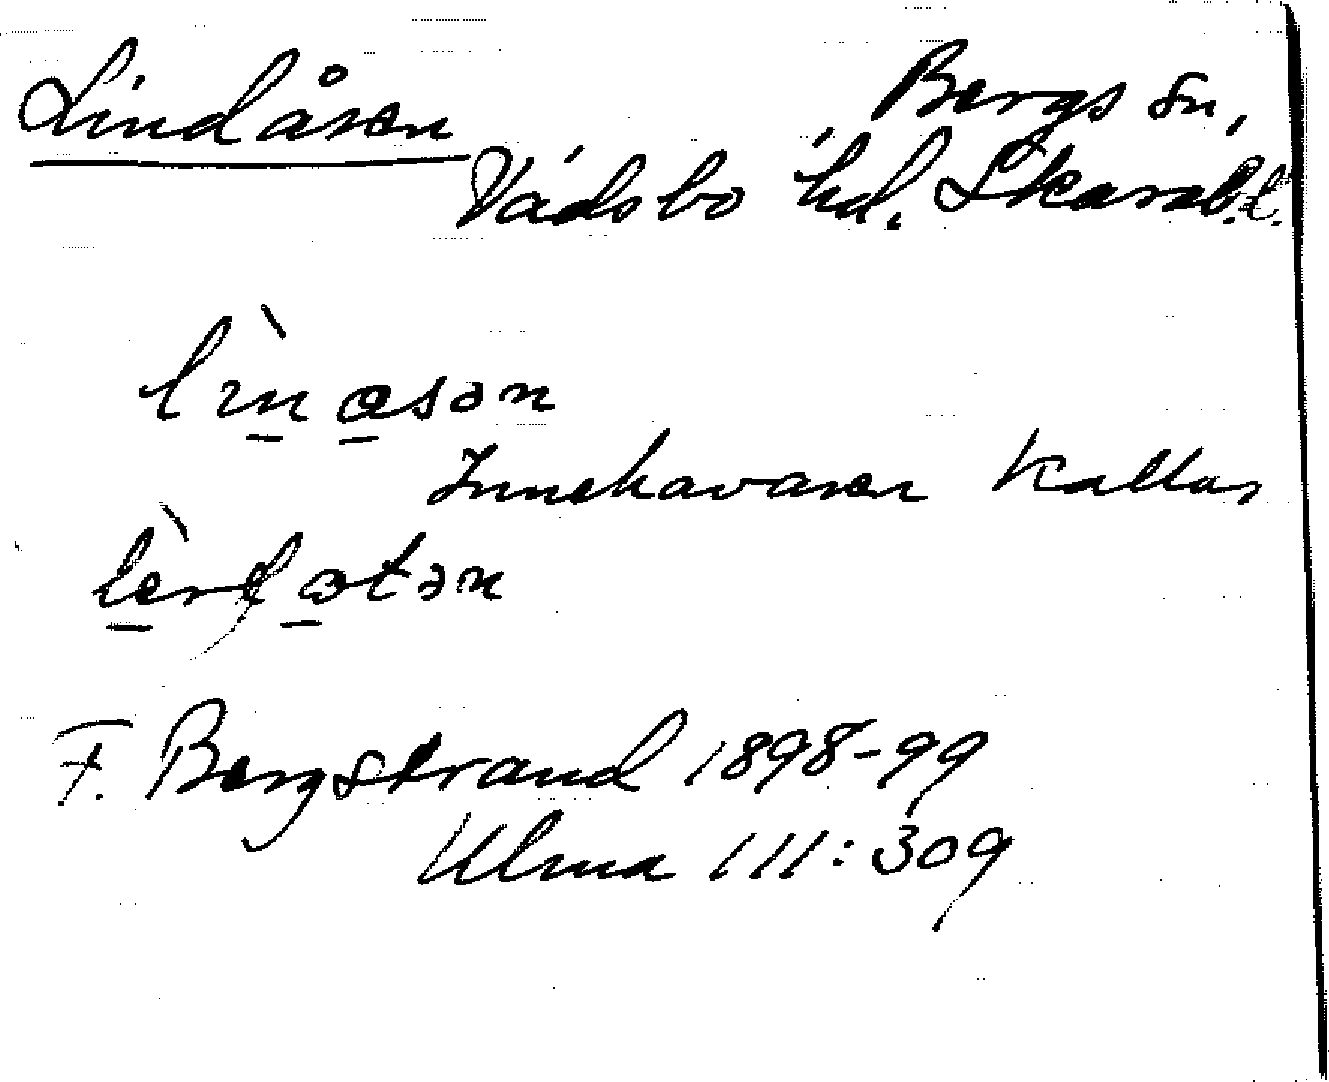 Lindåsen
Bergs sn,
Vadsbo hd. Skarab.l.
Innehavaren kallas
F. Bergstrand 1898-99
Ulma 111:309